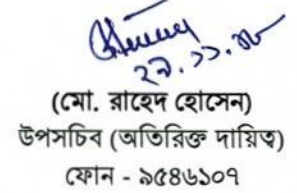 ২৯.১১.১৮
(মো. রাহেদ হোসেন)
উপসচিব (অতিরিক্ত দায়িত্ব)
ফোন - ৯৫৪৬১০৭